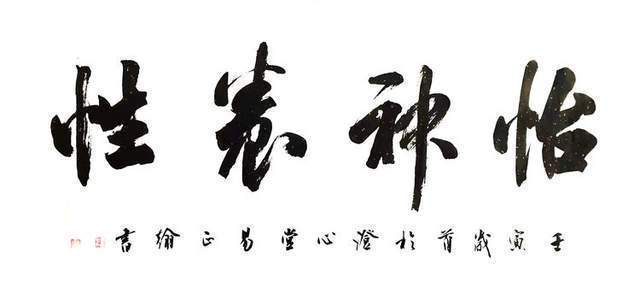 怡神養性
壬寅歲首於澄心堂易正翰書